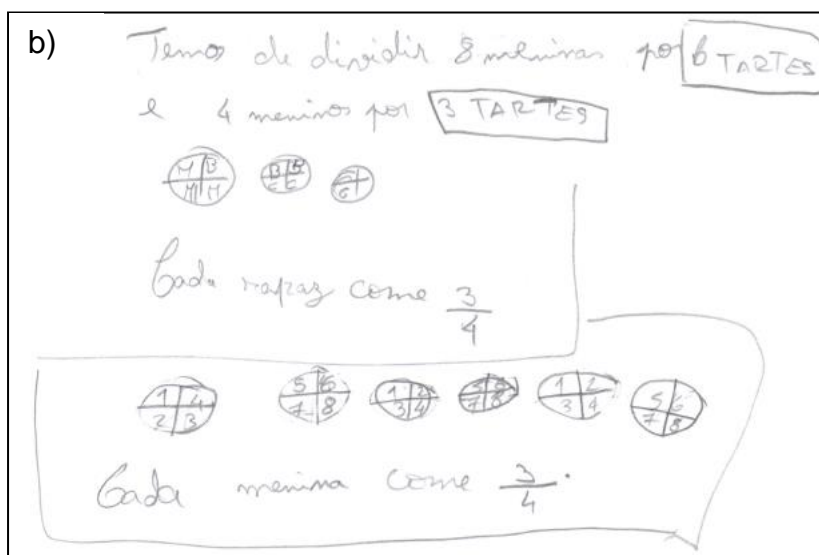 b)
Temos de dividir 8 meninas por 6 TARTES
e 4 meninos por 3 TARTES
M B
M M
B B
G G
G
Cada rapaz come 3/4
1 4
2 3
5 6
7 8
1 2
3 4
5 6
7 8
1 2
3 4
5 6
7 8
Cada menina come 3/4.